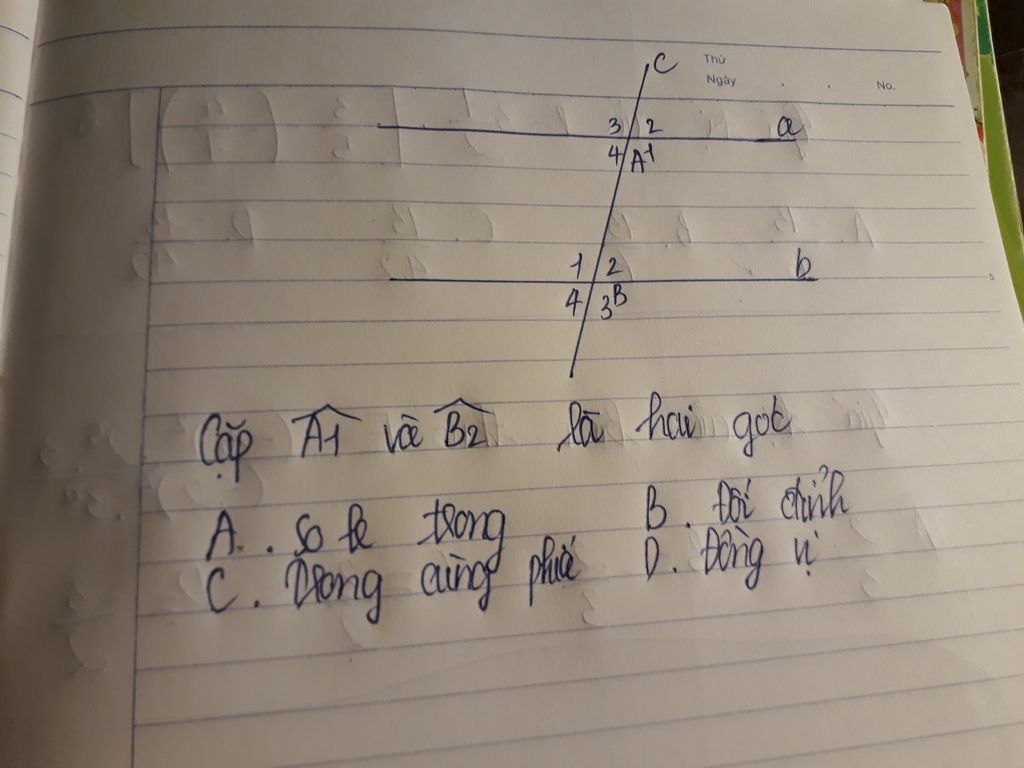 C
Thứ
Ngày
No.
3 2 a
4 A 1
1 2 b
4 3 B
5
Cặp A1 và B2 là hai góc
A. so le trong B. đối đỉnh
C. Trong cùng phía D. Đồng vị